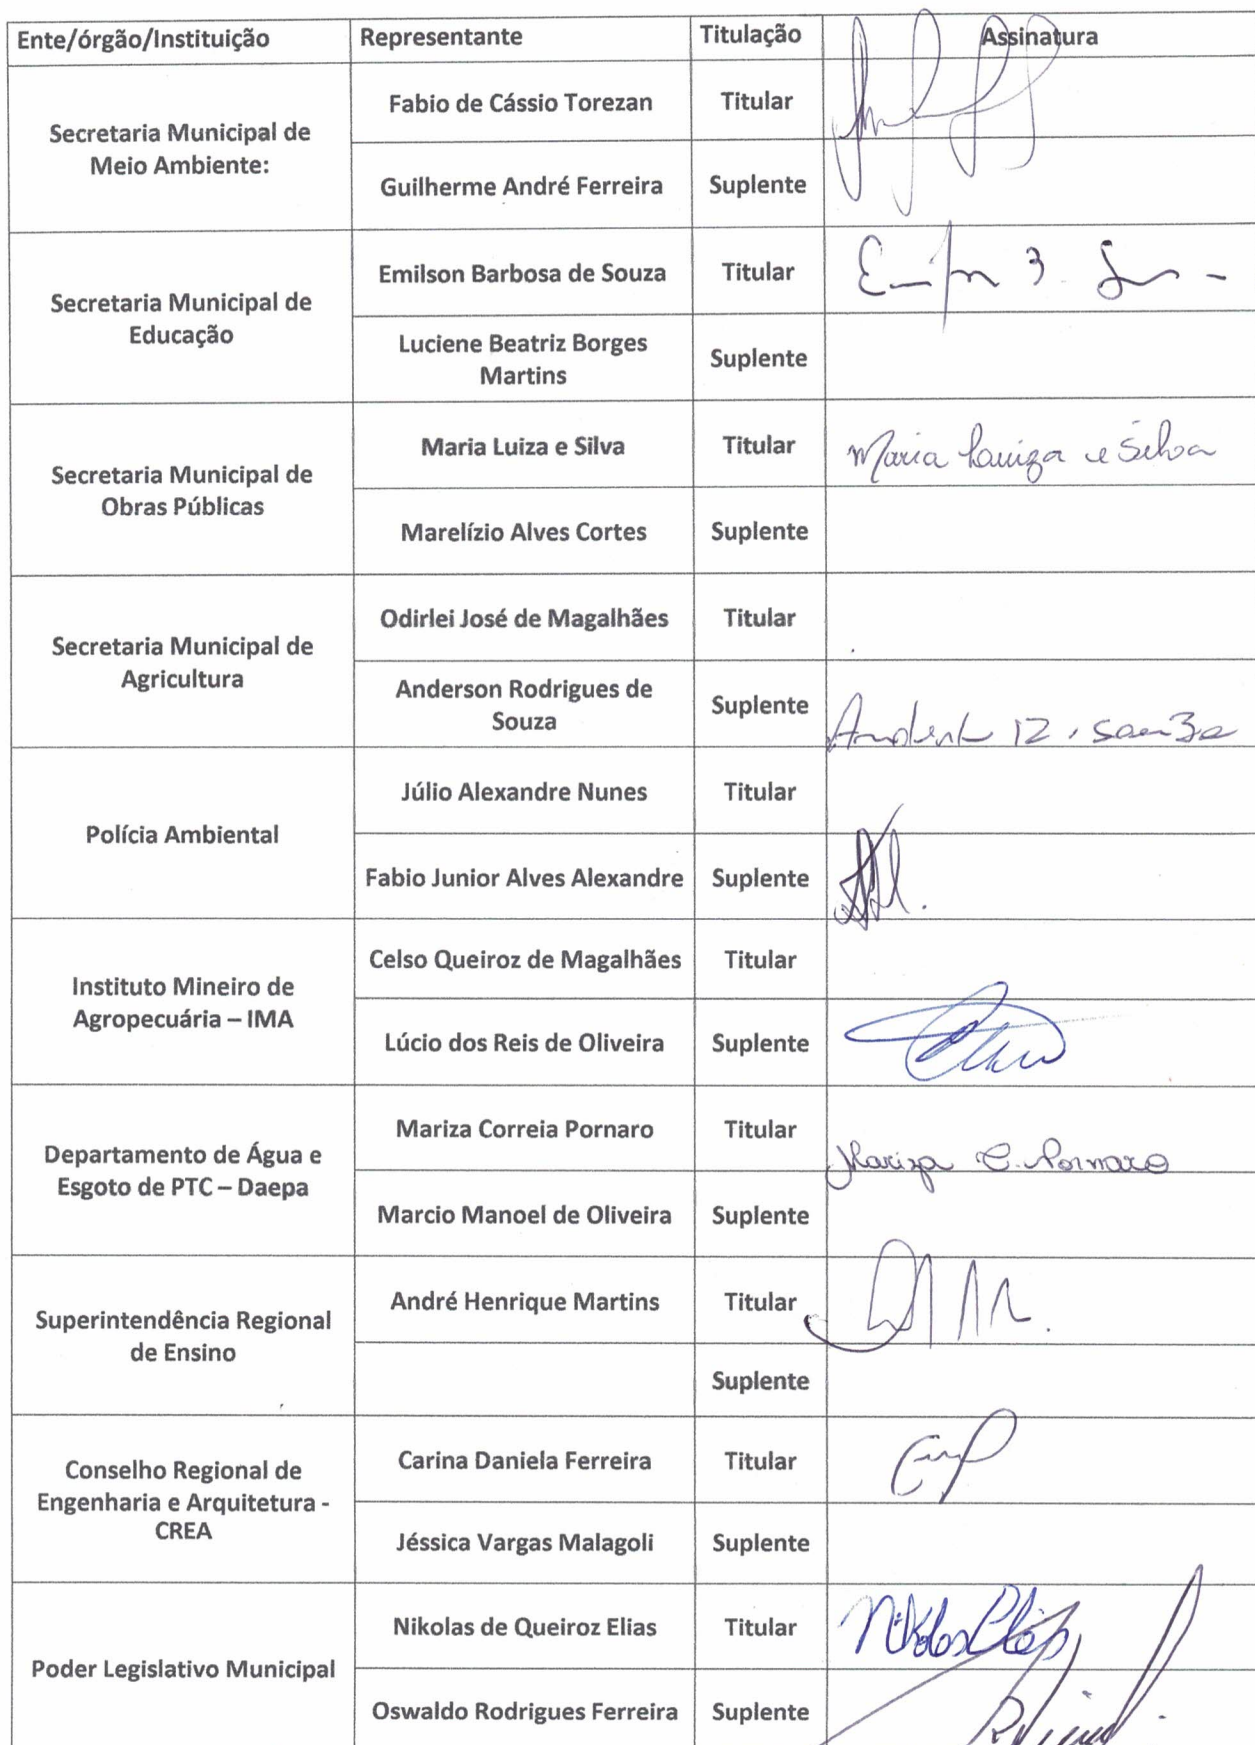 Ente/órgão/Instituição Representante Titulação Assinatura
Secretaria Municipal de
Meio Ambiente:
Fabio de Cássio Torezan Titular
Guilherme André Ferreira Suplente
Secretaria Municipal de
Educação
Emilson Barbosa de Souza Titular
Luciene Beatriz Borges
Martins
Suplente
Secretaria Municipal de
Obras Públicas
Maria Luiza e Silva Titular Maria Luiza e Silva
Marelízio Alves Cortes Suplente
Secretaria Municipal de
Agricultura
Odirlei José de Magalhães Titular
Anderson Rodrigues de
Souza
Suplente
Polícia Ambiental
Júlio Alexandre Nunes Titular
Fabio Junior Alves Alexandre Suplente
Instituto Mineiro de
Agropecuária – IMA
Celso Queiroz de Magalhães Titular
Lúcio dos Reis de Oliveira Suplente
Departamento de Água e
Esgoto de PTC – Daepa
Mariza Correia Pornaro Titular Mariza C. Pornaro
Marcio Manoel de Oliveira Suplente
Superintendência Regional
de Ensino
André Henrique Martins Titular
Suplente
Conselho Regional de
Engenharia e Arquitetura -
CREA
Carina Daniela Ferreira Titular
Jéssica Vargas Malagoli Suplente
Poder Legislativo Municipal
Nikolas de Queiroz Elias Titular Nikolas Elias
Oswaldo Rodrigues Ferreira Suplente